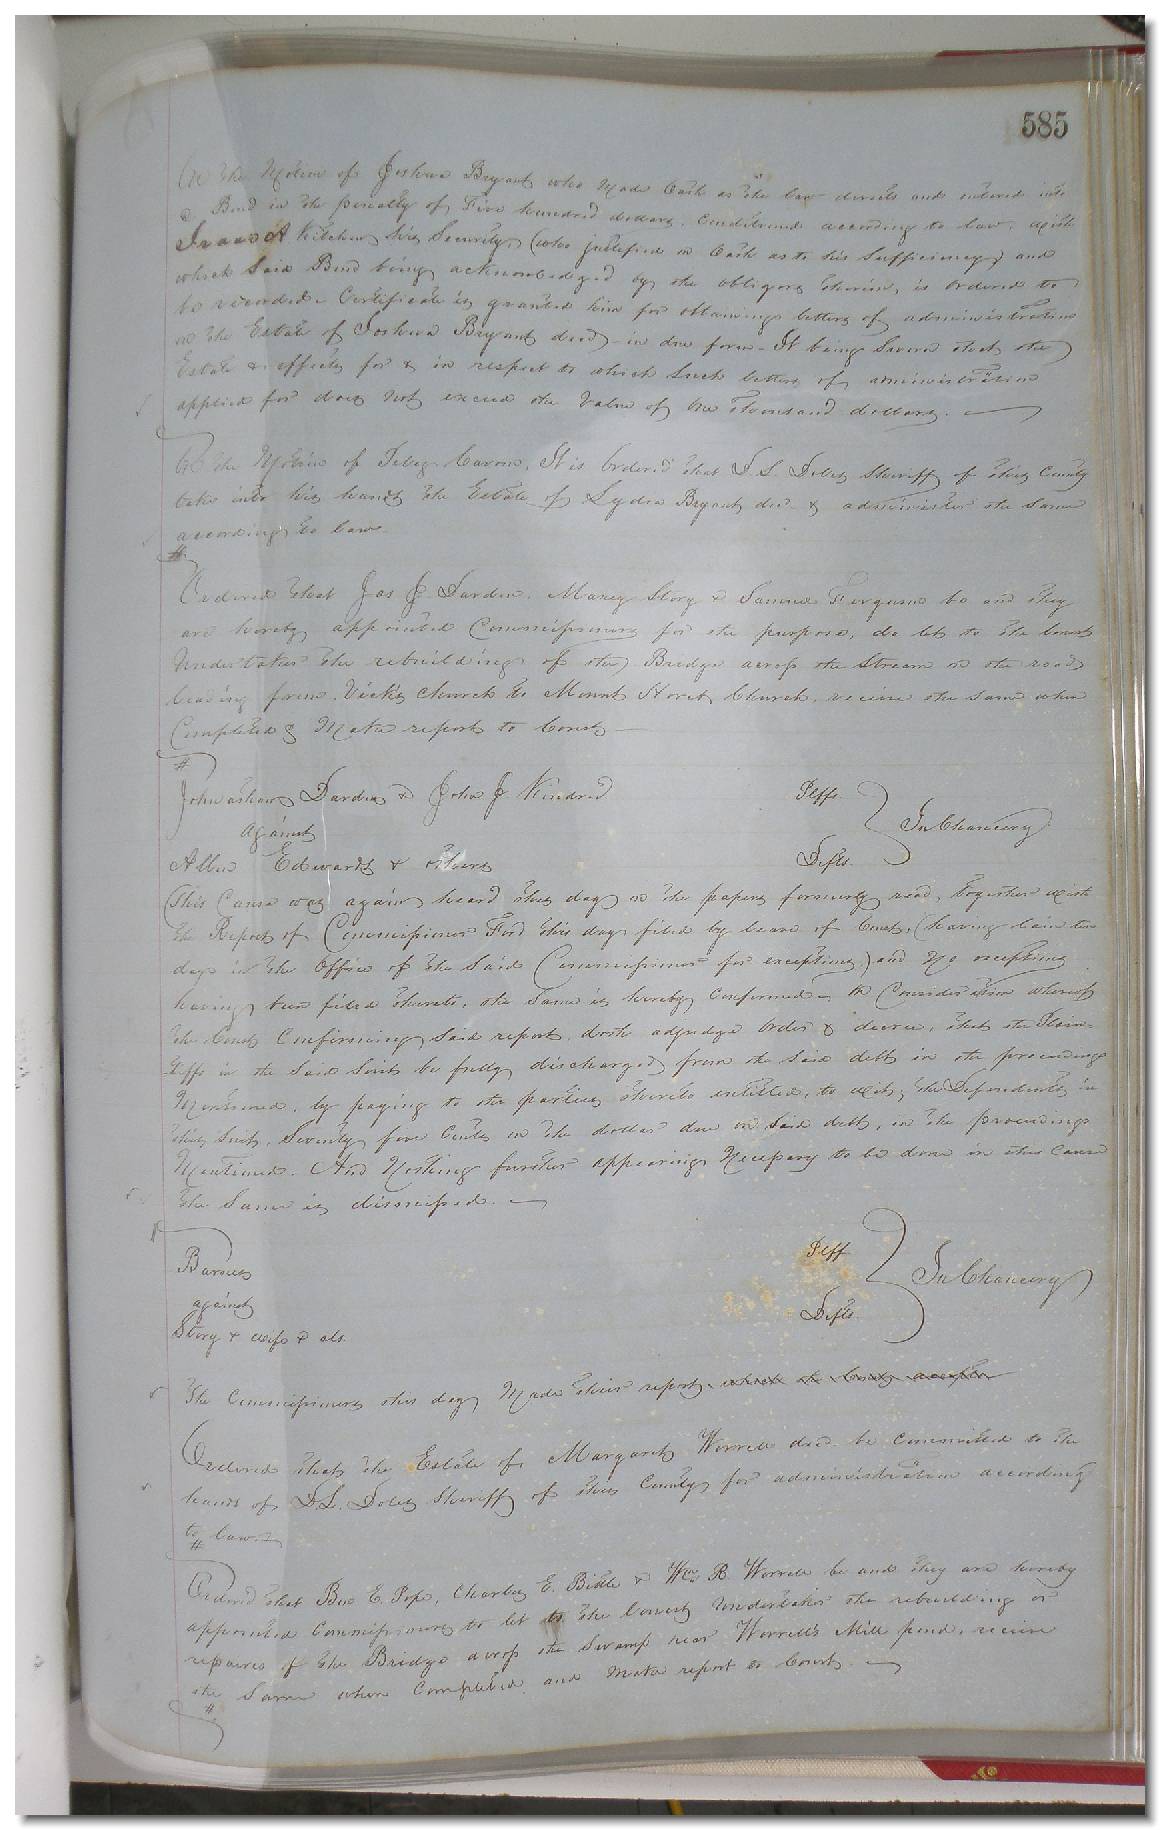 585
On the Motion of Joshua Bryant who made Oath as the law directs and entered into
a Bond in the penalty of Five hundred dollars, Conditioned according to law, with
Isaac A Kitchen his Security, (who justified on Oath as to his Sufficiency) and
which Said Bond being acknowledged by the obligors therein, is ordered to
be recorded. Certificate is granted him for obtaining letters of administration
on the Estate of Joshua Bryant decd, in due form - It being Sworn that the
Estate & effects for & in respect to which Such letters of administration
applied for does not exceed the Value of One thousand dollars.
On the Motion of It is Ordered that Sheriff of this County
take into his hands the Estate of Lydia Bryant decd. & administer the Same
according to law.
#
Ordered that Jas J Darden, Maxey Story & Samuel Ferguson be and they
are hereby appointed Commissioners for the purpose, do let to the lowest
Undertaker the rebuilding of the Bridge across the Stream on the road
leading from Vicks Church to Mount Horeb Church, receive the Same when
Completed & Make report to Court
#
Darden & John J Kindred Plffs
against In Chancery
Edwards & others Defts
This Cause was again heard this day on the papers formerly read, together with
the Report of Commissioner Ford this day filed by leave of Court, (having lain ten
days in the Office of the Said Commissioner for exceptions) and No exceptions
having been filed thereto, the Same is hereby Confirmed, On Consideration whereof
the Court Confirming Said report, doth adjudge order & decree, that the Plain-
tiffs in the Said Suit be fully discharged from the Said debt in the proceedings
Mentioned, by paying to the parties thereto entitled, to wit, the Defendants in
this Suit, Seventy five Cents in the dollar due on Said debt, in the proceedings
Mentioned. And Nothing further appearing Necessary to be done in this Cause
the Same is dismissed.
Barnes Plff
against In Chancery
Story & wife & als Defts
The Commissioners this day Made their report which the Court accepted
Ordered that the Estate of Margaret Worrell decd. be Committed to the
hands of Sheriff of this County for administration according
to law
#
Ordered that E. Pope, Charles E. Bittle & Wm R. Worrell be and they are hereby
appointed Commissioners to let to the lowest Undertaker the rebuilding or
repairs of the Bridge across the Swamp near Worrell's Mill pond, receive
the Same when Completed and Make report to Court.
#